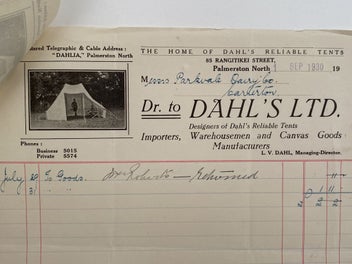 Registered Telegraphic & Cable Address:
"DAHLIA," Palmerston North
THE HOME OF DAHL'S RELIABLE TENTS
85 RANGITIKEI STREET,
Palmerston North
1 SEP 1930
19
Messrs Parkvale Dairy Co.
Carterton
Dr. to DAHL'S LTD.
Designers of Dahl's Reliable Tents
Importers, Warehousemen and Canvas Goods
Manufacturers
L. V. DAHL, Managing-Director.
Phones:
Business 5015
Private 5574
July 29 To Goods. Mr Roberts — Returned
31 " "